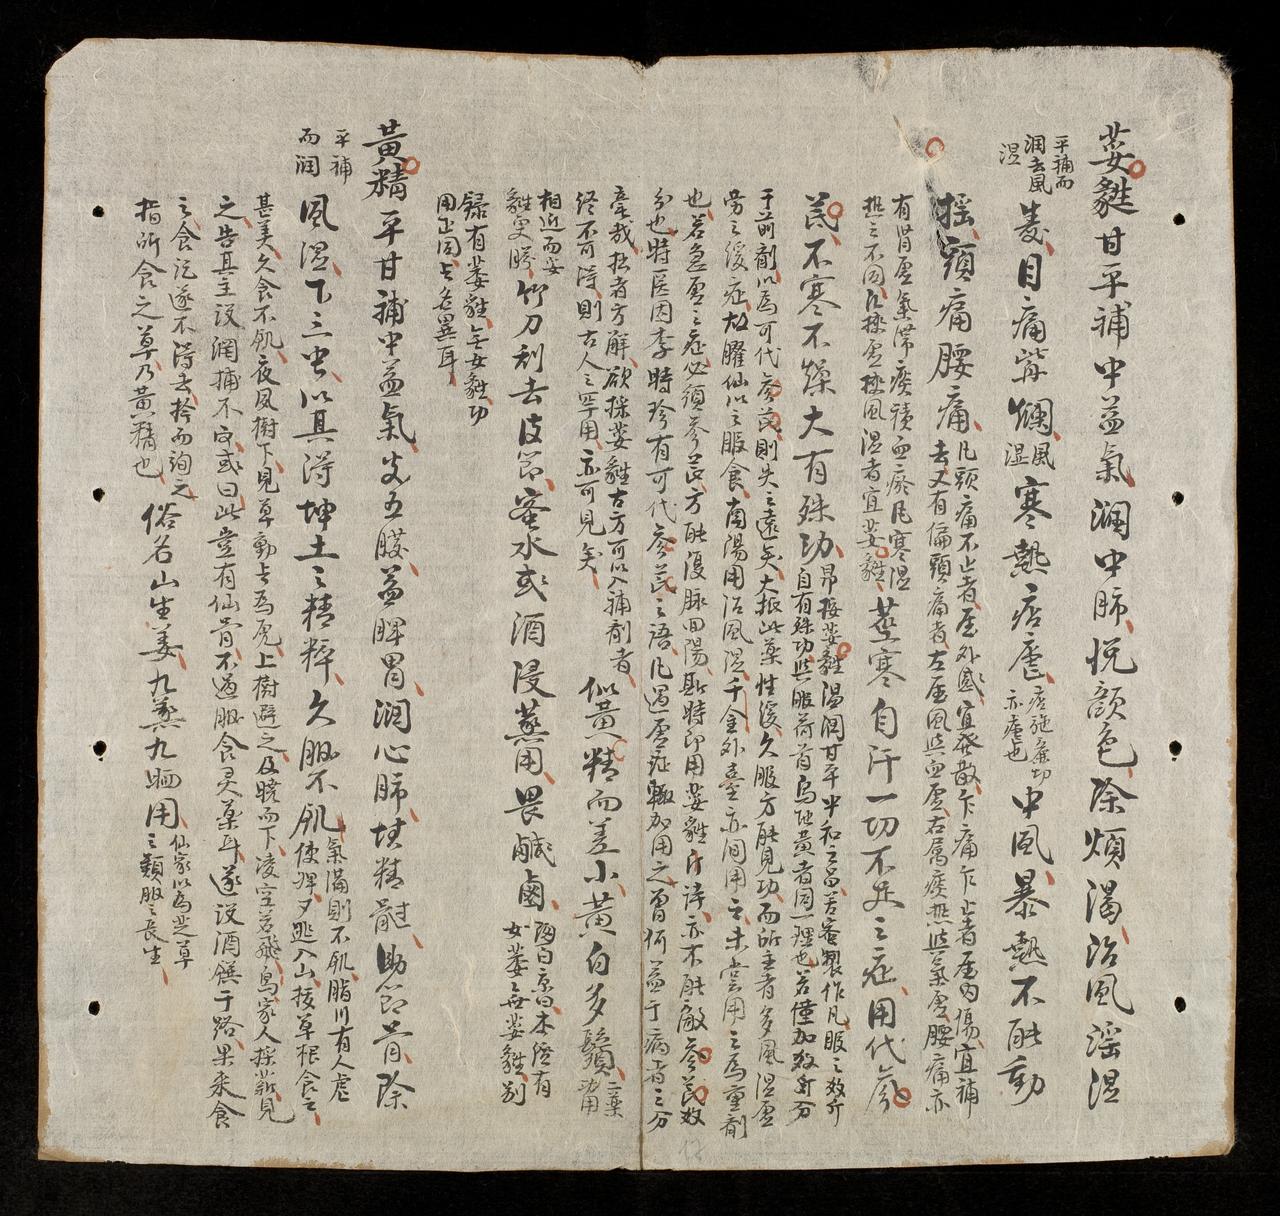 萎蕤甘平補中益氣潤中肺悅顏色除煩渴治風淫湿
平補而
潤去風
湿
毒目痛眥爛風
湿寒熱痁瘧痁施廉切
亦瘧也中風暴熱不能動
搖頭痛腰痛凡頭痛不止者屬外感宜發散乍痛乍止者屬內傷宜補
去又有偏頭痛者左屬風與血虛右屬痰熱與氣虛腰痛亦
有肾虛氣滯痰積血瘀凡寒湿
熱之不同治挾虛挾風湿者宜萎蕤莖寒自汗一切不足之症用代參
芪不寒不燥大有殊功昂按萎蕤温潤甘平中和之品若蜜製作丸服之数斤
自有殊功與服荷首烏地黃者同一理也若僅加数分
于前劑以為可代參芪則失之遠矣大抵此藥性緩久服方能見功而所主者多風湿虛
勞之緩症故臞仙以之服食南陽用治風温千金外臺亦间用之未尝用之為重劑
也若急虛之症必須參芪方能復脉回陽斯時即用萎蕤斤許亦不能敵參芪数
分也特医因李時珍有可代參芪之語凡遇虛症輒加用之曾何益于病者之分
毫哉拙者方觧欲採萎蕤古方可以入補剤者
终不可得則古人之罕用亦可見矣似黃精而差小黃白多鬚二藥
功用
相近而萎
蕤更勝竹刀刮去皮節蜜水或酒浸蒸用畏鹹鹵陶曰京曰本經有
女萎無萎蕤别
録有萎蕤無女蕤功
用正同上名異耳
黃精平甘補中益氣安五臟益脾胃潤心肺填精髓助筋骨除
平補
而潤
風湿下三虫以其得坤土之精粹久服不飢氣滿則不飢脂川有人虐
使婢夕逃入山拔草根食之
甚美久食不飢夜宿樹下見草動上為虎上樹避之及曉而下凌空若飛鳥家人採薪見
之告其主設網捕不成或曰此豈有仙骨不過服食灵藥耳遂設酒饌于路果来食
之食訖遂不得去拎而詢之
指所食之草乃黃精也俗名山生姜九蒸九晒用仙家以為芝草
之類服之長生